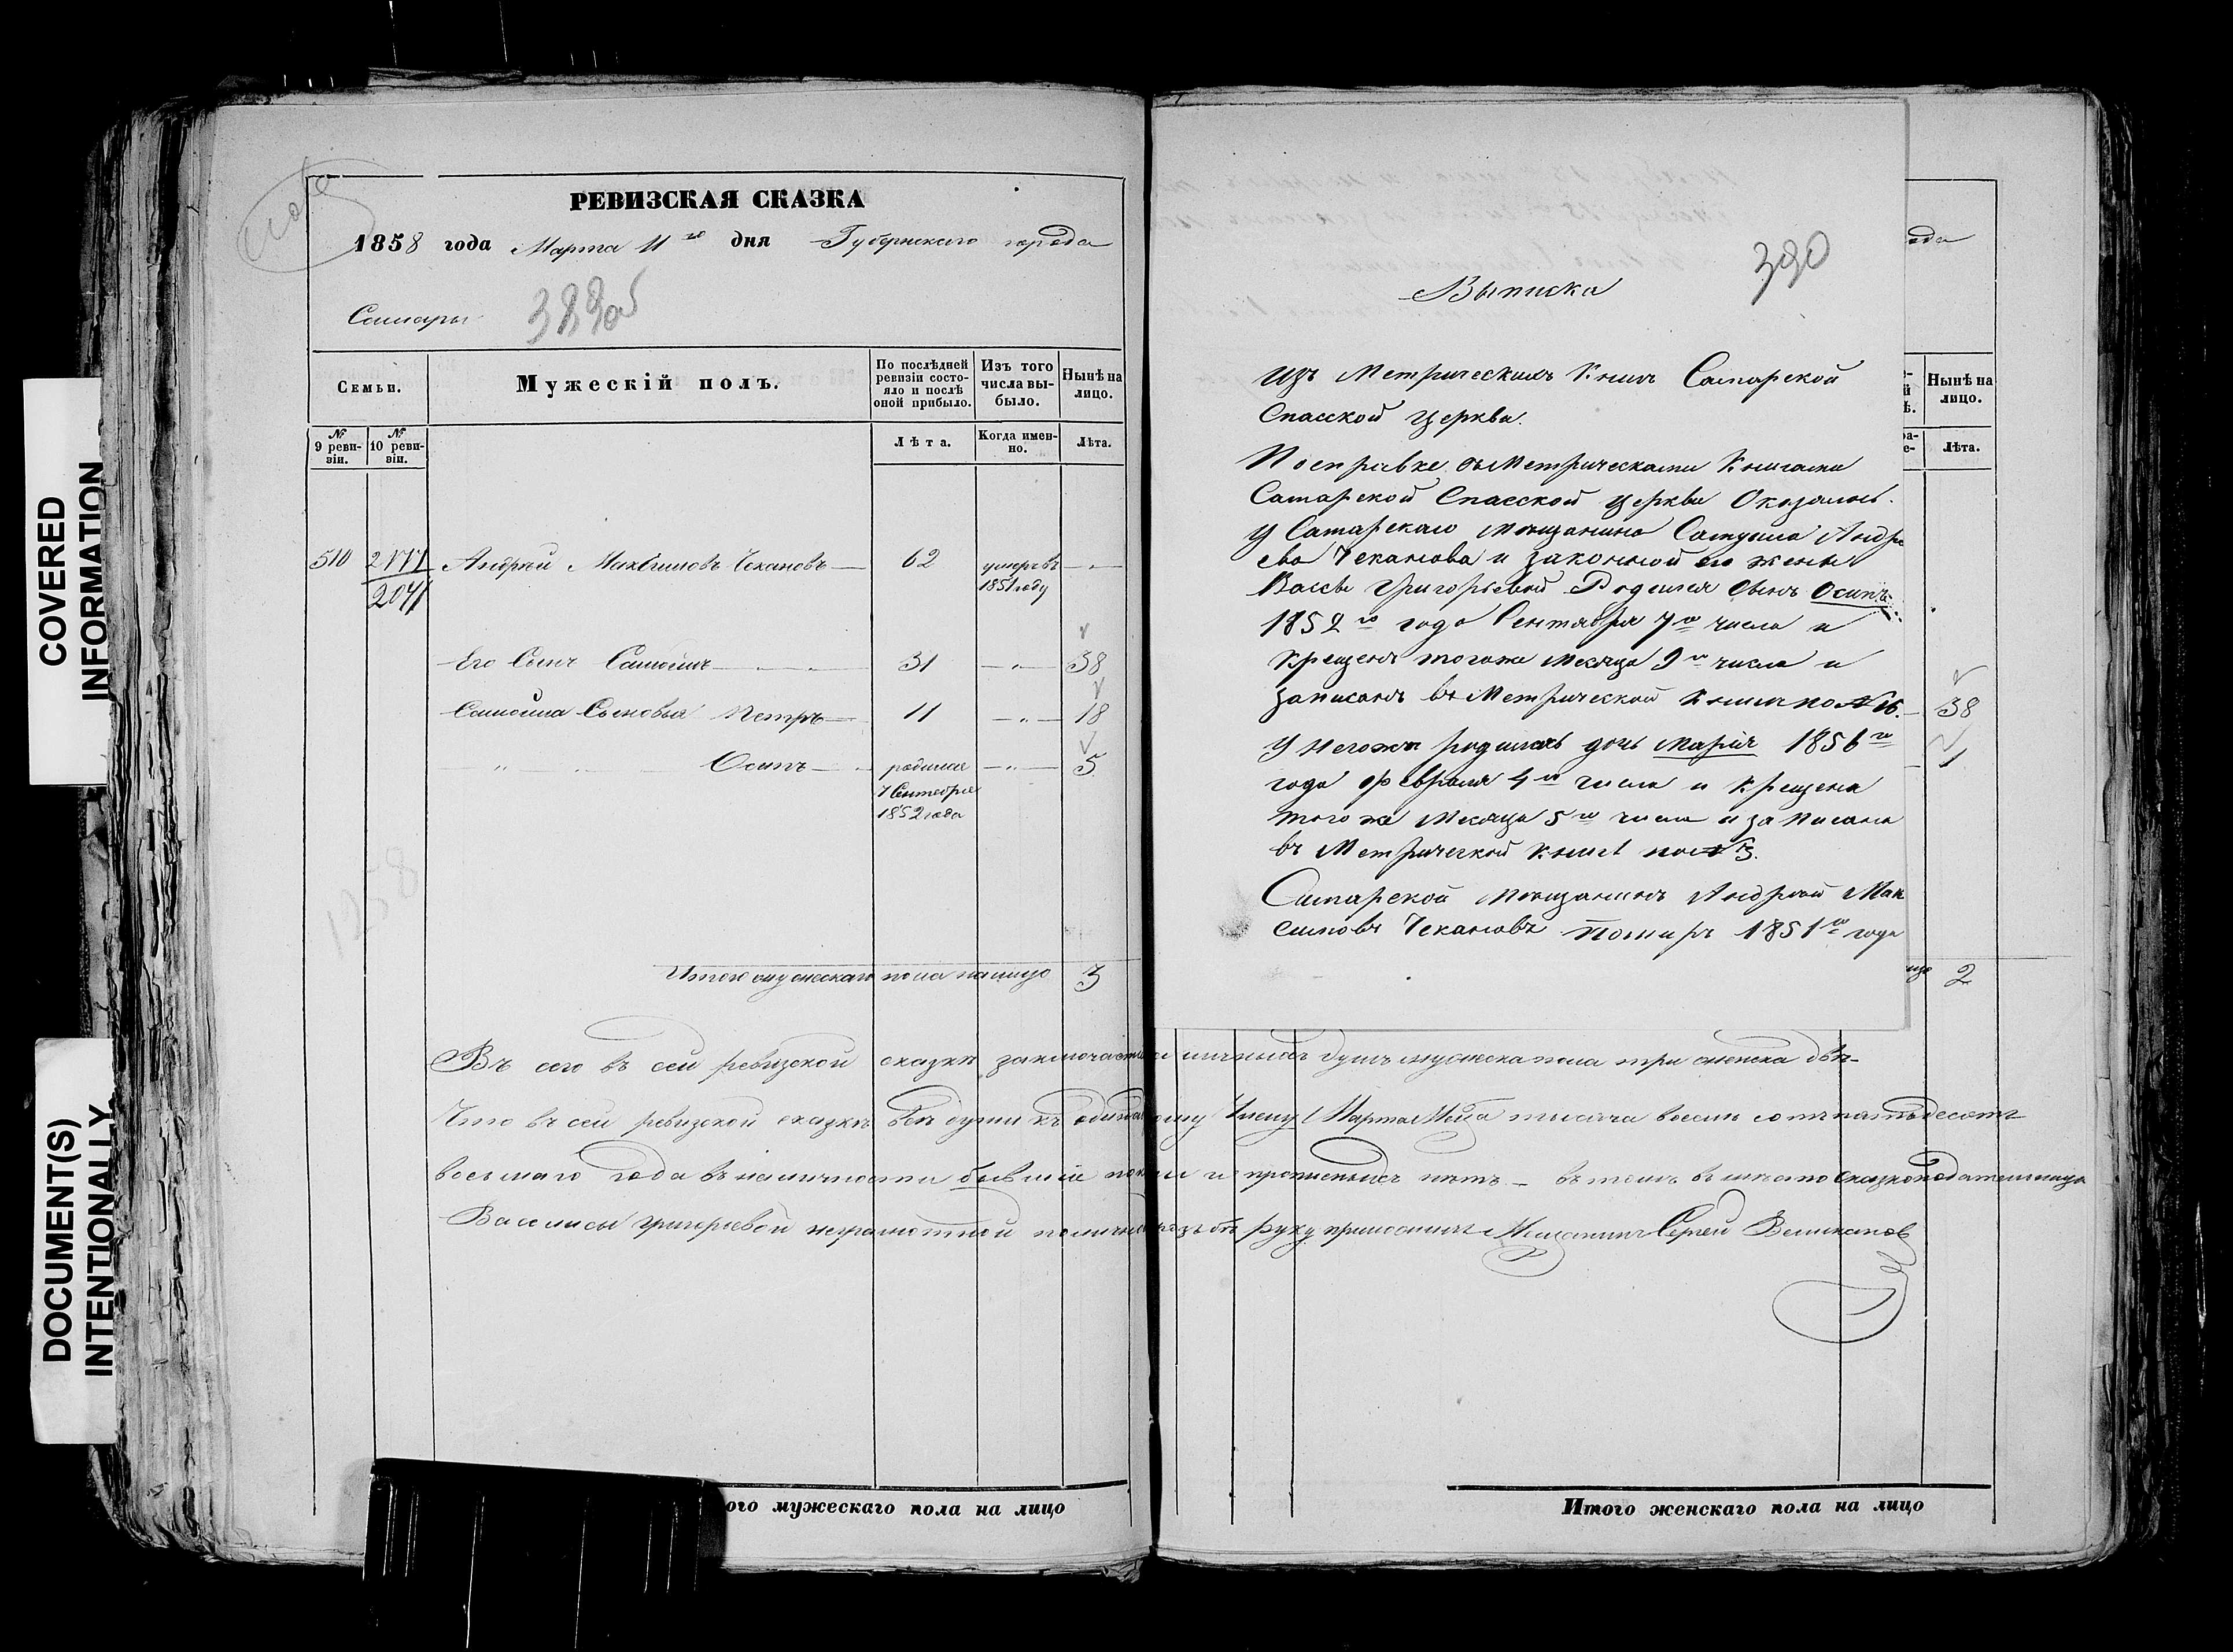 COVERED
INFORMATION
DOCUMENT(S)
INTENTIONALLY
РЕВИЗСКАЯ СКАЗКА
1858 года Марта 11го дня Губернскаго города
Самары 389об
Семьи.
Мужескій полъ.
По послѣдней ревизіи состояло и послѣ оной прибыло.
Изъ того числа выбыло.
Нынѣ на лицо.
№ 9 ревизіи.
№ 10 ревизіи.
Лѣта.
Когда именно.
Лѣта.
510 Андрей Максимовъ Чекановъ 62 умеръ въ 1851 году
2041
Его Сынъ Самойла 31 38
Самойла Сыновья Петръ 11 18
Осипъ родился 7 Сентября 1852 года 5
1258
Итого мужескаго пола налицо 3
390
Выписка
Изъ Метрическихъ Книгъ Самарской
Спасской Церкви.
По справке съ Метрическами Книгами
Самарской Спасской Церкви Оказалось.
У Самарскаго мещанина Самуила Андре
ева Чеканова и законной его жены
Вассы Григорьевой Родился сынъ Осипъ
1852го года Сентября 7го числа и
крещенъ тогоже месяца 9го числа и
записанъ въ Метрической Книги по № 16.
У Негоже родилась дочь Марія 1856го
года Февраля 4го числа и крещена
того же Месяца 5го числа и записана
въ Метрической книге по № 3.
Самарской мещанинъ Андрей Мак
симовъ Чекановъ Помиръ 1851го года
ода
Нынѣ на лицо.
Лѣта.
38
1
2
Въ сего въ сей ревизской сказкѣ заключается наличныхъ душъ мужеска пола три женска двѣ
Что въ сей ревизской сказкѣ всѣ души къ Числу Марта Мсца тысяча восемь сотъ пятьдесятъ
восьмаго года въ наличности бывшіе показаны и прописныхъ нетъ — въ томъ вместо сказкоподательницы
Василисы Григорьевой неграмотной по личной прозьбѣ руку приложилъ Мещанинъ Сергей Великановъ
ого мужескаго пола на лицо
Итого женскаго пола на лицо